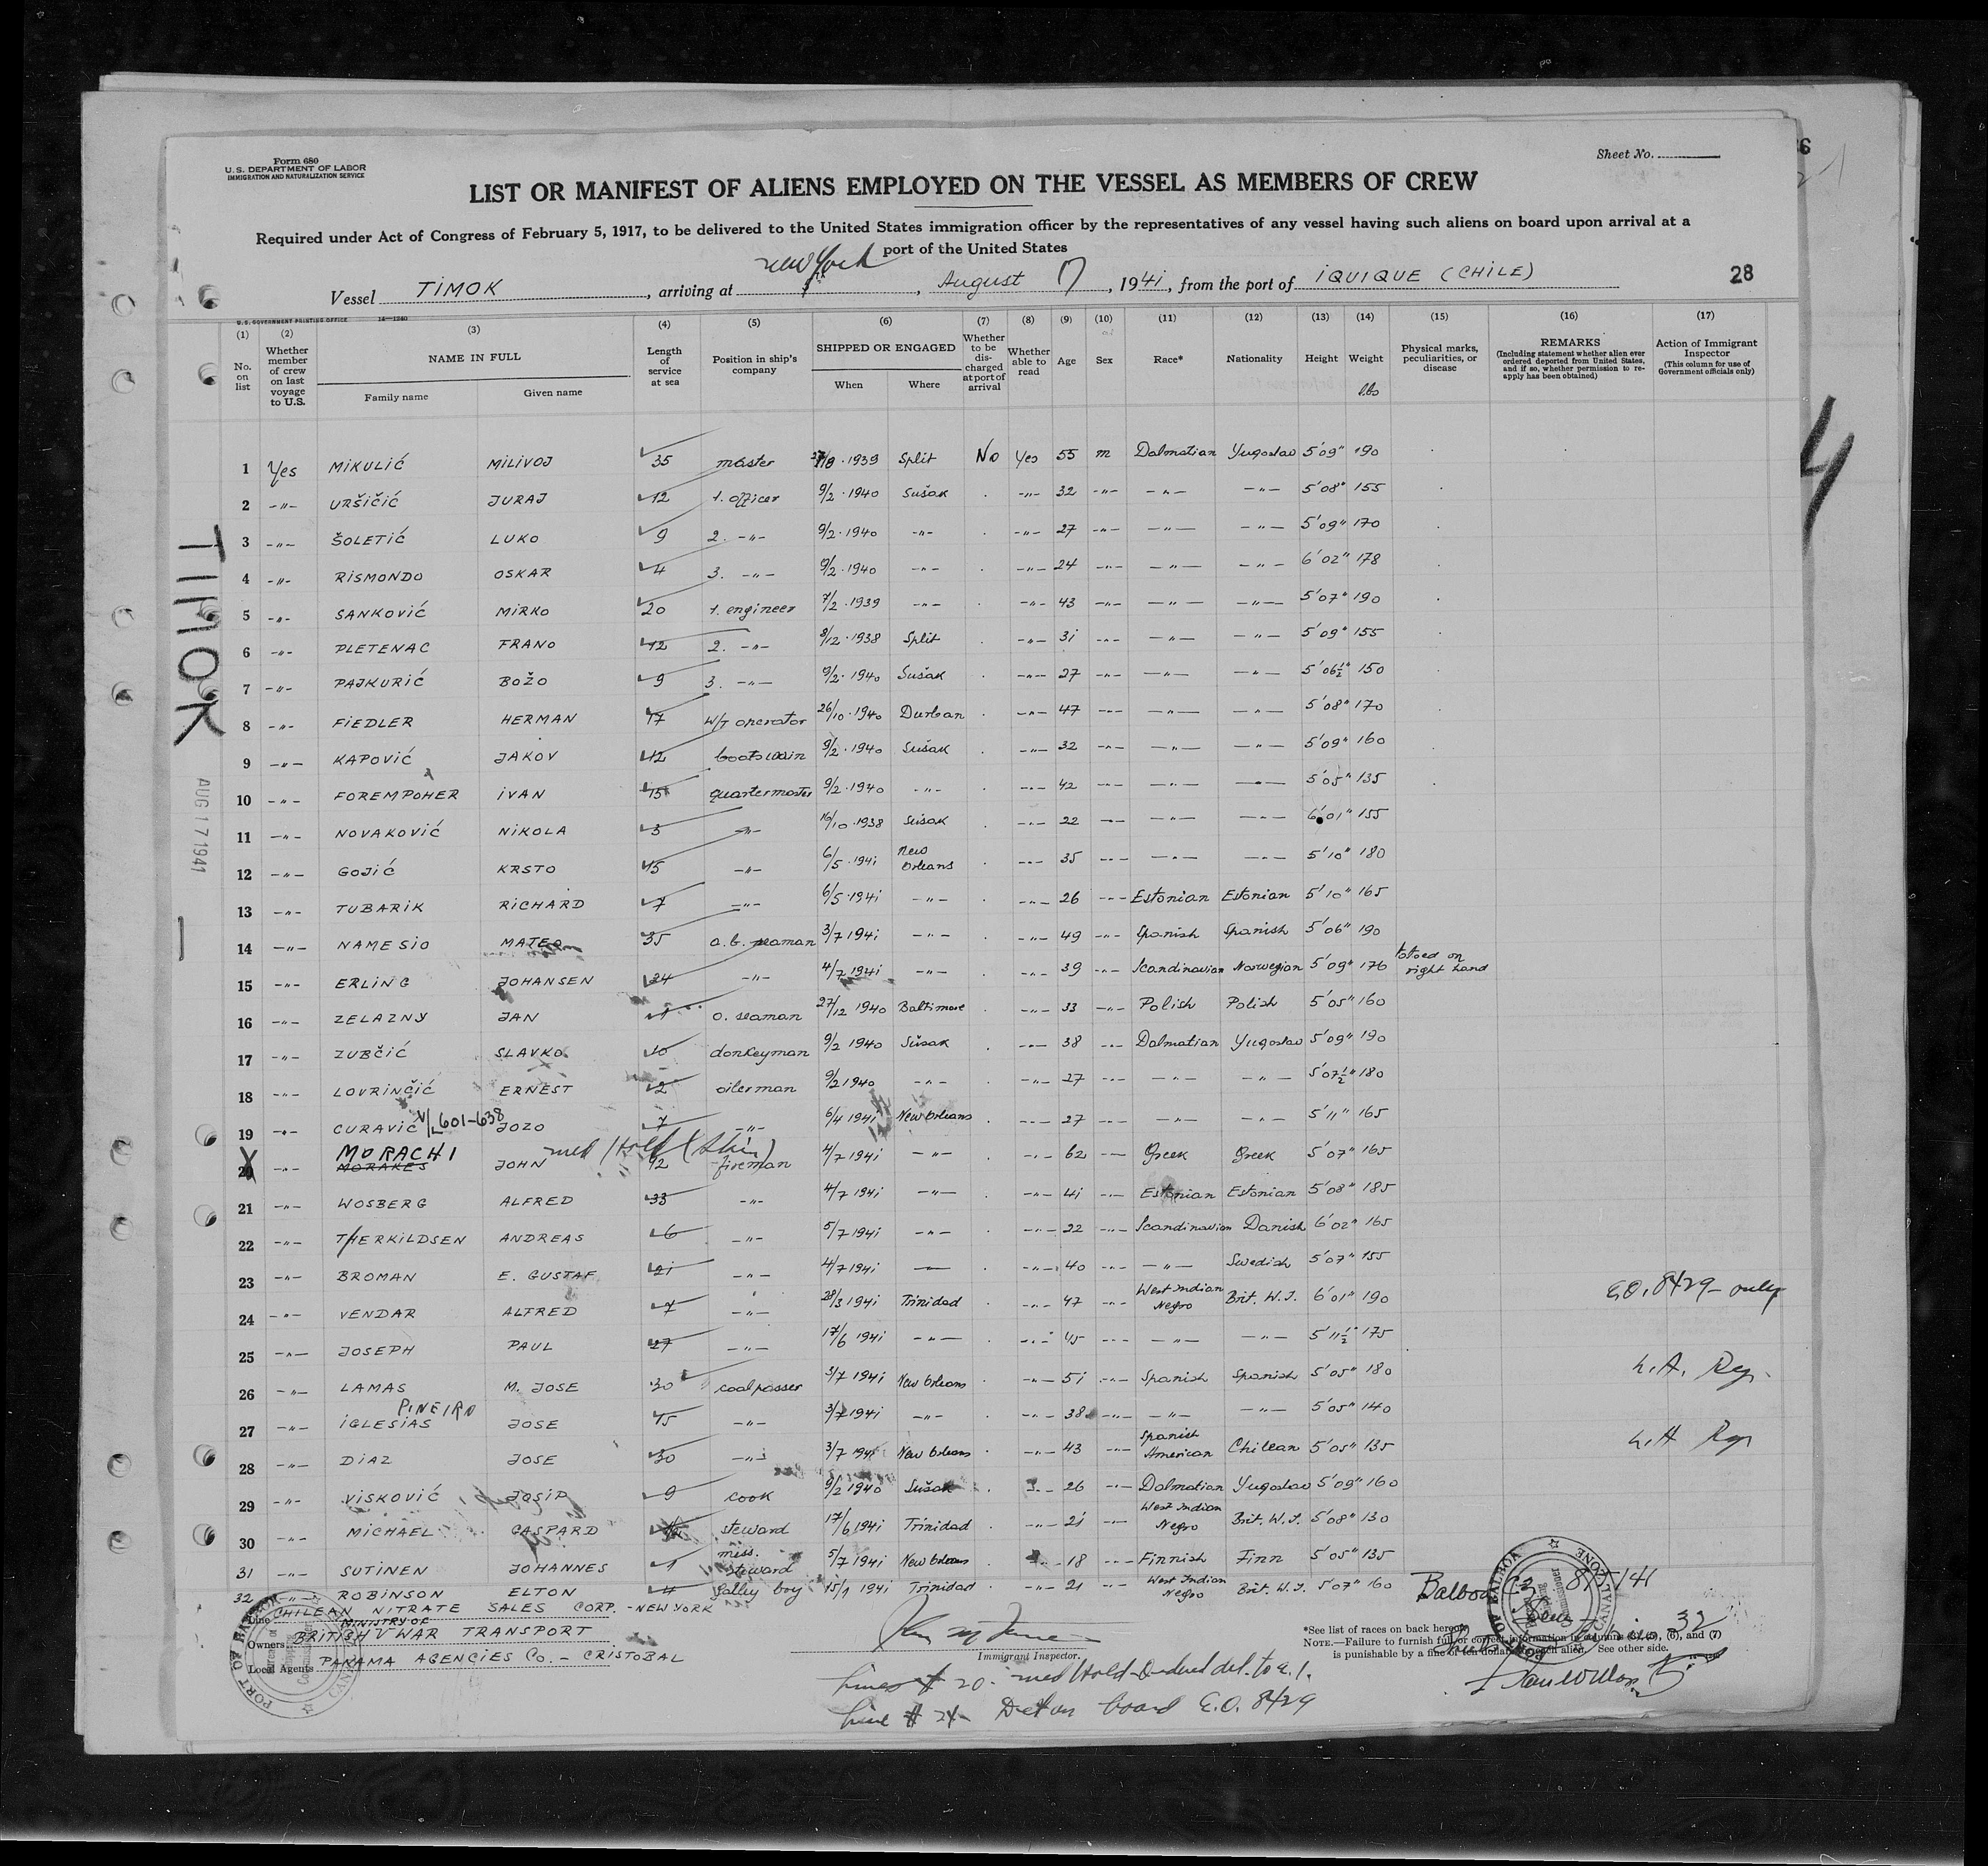 Form 680
U.S. DEPARTMENT OF LABOR
IMMIGRATION AND NATURALIZATION SERVICE
Sheet No.
LIST OR MANIFEST OF ALIENS EMPLOYED ON THE VESSEL AS MEMBERS OF CREW
Required under Act of Congress of February 5, 1917, to be delivered to the United States immigration officer by the representatives of any vessel having such aliens on board upon arrival at a
port of the United States
Vessel TIMOK, arriving at new York, August 17, 1941, from the port of IQUIQUE (CHILE)
28
U.S. GOVERNMENT PRINTING OFFICE 14—1240
(1) (2) (3) (4) (5) (6) (7) (8) (9) (10) (11) (12) (13) (14) (15) (16) (17)
No. on list
Whether member of crew on last voyage to U.S.
NAME IN FULL
Family name
Given name
Length of service at sea
Position in ship's company
SHIPPED OR ENGAGED
When
Where
Whether to be discharged at port of arrival
Whether able to read
Age
Sex
Race*
Nationality
Height
Weight
lbs
Physical marks, peculiarities, or disease
REMARKS
(Including statement whether alien ever ordered deported from United States, and if so, whether permission to reapply has been obtained)
Action of Immigrant Inspector
(This column for use of Government officials only)
1 Yes MIKULIĆ MILIVOJ 35 master 1939 Split No Yes 55 m Dalmatian Yugoslav 5'09" 190
2 -"- URŠIČIĆ JURAJ 12 1. officer 9/2. 1940 Sušak -"- 32 -"- -"- -"- 5'08" 155
3 -"- ŠOLETIĆ LUKO 9 2. -"- 9/2. 1940 -"- -"- 27 -"- -"- -"- 5'09" 170
4 -"- RISMONDO OSKAR 4 3. -"- 9/2. 1940 -"- -"- 24 -"- -"- -"- 6'02" 178
5 -"- SANKOVIĆ MIRKO 20 1. engineer 7/2. 1939 -"- -"- 43 -"- -"- -"- 5'07" 190
6 -"- PLETENAC FRANO 12 2. -"- 8/12. 1938 Split -"- 31 -"- -"- -"- 5'09" 155
7 -"- PAJKURIĆ BOŽO 9 3. -"- 9/2. 1940 Sušak -"- 27 -"- -"- -"- 5'06½" 150
8 -"- FIEDLER HERMAN 17 W/T operator 26/10. 1940 Durban -"- 47 -"- -"- -"- 5'08" 170
9 -"- KAPOVIĆ JAKOV 12 boatswain 9/2. 1940 Sušak -"- 32 -"- -"- -"- 5'09" 160
10 -"- FOREMPOHER IVAN 15 quartermaster 9/2. 1940 -"- -"- 42 -"- -"- -"- 5'05" 135
11 -"- NOVAKOVIĆ NIKOLA 3 -"- 16/10. 1938 Sušak -"- 22 -"- -"- -"- 6'01" 155
12 -"- GOJIĆ KRSTO 15 -"- 6/5. 1941 New Orleans -"- 35 -"- -"- -"- 5'10" 180
13 -"- TUBARIK RICHARD 7 -"- 6/5. 1941 -"- -"- 26 -"- Estonian Estonian 5'10" 165
14 -"- NAMESIO MATEO 35 a.b. seaman 3/7 1941 -"- -"- 49 -"- Spanish Spanish 5'06" 190
15 -"- ERLING JOHANSEN 24 -"- 4/7 1941 -"- -"- 39 -"- Scandinavian Norwegian 5'09" 176 tatoed on right hand
16 -"- ZELAZNY JAN 1 o. seaman 27/12 1940 Baltimore -"- 33 -"- Polish Polish 5'05" 160
17 -"- ZUBČIĆ SLAVKO 10 donkeyman 9/2 1940 Sušak -"- 38 -"- Dalmatian Yugoslav 5'09" 190
18 -"- LOVRINČIĆ ERNEST 2 oilerman 9/2 1940 -"- -"- 27 -"- -"- -"- 5'07½" 180
19 -"- CURAVIĆ V/L 601-638 JOZO 7 -"- 6/4 1941 New Orleans -"- 27 -"- -"- -"- 5'11" 165
X 20 -"- MORACHI MORAKES JOHN med Hold (skin) 12 fireman 4/7 1941 -"- -"- 62 -"- Greek Greek 5'07" 165
21 -"- WOSBERG ALFRED 33 -"- 4/7 1941 -"- -"- 41 -"- Estonian Estonian 5'08" 185
22 -"- THERKILDSEN ANDREAS 6 -"- 5/7 1941 -"- -"- 22 -"- Scandinavian Danish 6'02" 165
23 -"- BROMAN E. GUSTAF 21 -"- 4/7 1941 -"- -"- 40 -"- -"- Swedish 5'07" 155
24 -"- VENDAR ALFRED 7 -"- 28/3 1941 Trinidad -"- 47 -"- West Indian Negro Brit. W.I. 6'01" 190 E.O. 8429 - only
25 -"- JOSEPH PAUL 27 -"- 17/6 1941 -"- -"- 45 -"- -"- -"- 5'11½" 175
26 -"- LAMAS M. JOSE 30 coalpasser 3/7 1941 New Orleans -"- 51 -"- Spanish Spanish 5'05" 180
27 -"- PINEIRO IGLESIAS JOSE 15 -"- 3/7 1941 -"- -"- 38 -"- -"- -"- 5'05" 140
28 -"- DIAZ JOSE 30 -"- 3/7 1941 New Orleans -"- 43 -"- Spanish American Chilean 5'05" 135
29 -"- VISKOVIĆ JOSIP 9 cook 9/2 1940 Sušak 26 -"- Dalmatian Yugoslav 5'09" 160
30 -"- MICHAEL GASPARD steward 17/6 1941 Trinidad -"- 21 -"- West Indian Negro Brit. W.I. 5'08" 130
31 -"- SUTINEN JOHANNES 1 mess. steward 5/7 1941 New Orleans 18 -"- Finnish Finn 5'05" 135
32 -"- ROBINSON ELTON 4 galley boy 15/1 1941 Trinidad -"- 21 -"- West Indian Negro Brit. W.I. 5'07" 160
Line CHILEAN NITRATE SALES CORP. - NEW YORK
Owners BRITISH MINISTRY OF WAR TRANSPORT
Local Agents PANAMA AGENCIES Co. - CRISTOBAL
Immigrant Inspector.
*See list of races on back hereof.
NOTE.—Failure to furnish full or correct information in columns (3), (5), (6), and (7)
is punishable by a fine of ten dollars for each alien. See other side.
Balboa CZ 8/5/41
32
PORT OF BALBOA
CANAL ZONE
PORT OF BALBOA
Lines # 20 - med Hold - Ordered del. to E.I.
Line # 24 - Det on board E.O. 8429
TIMOK
AUG 17 1941
4